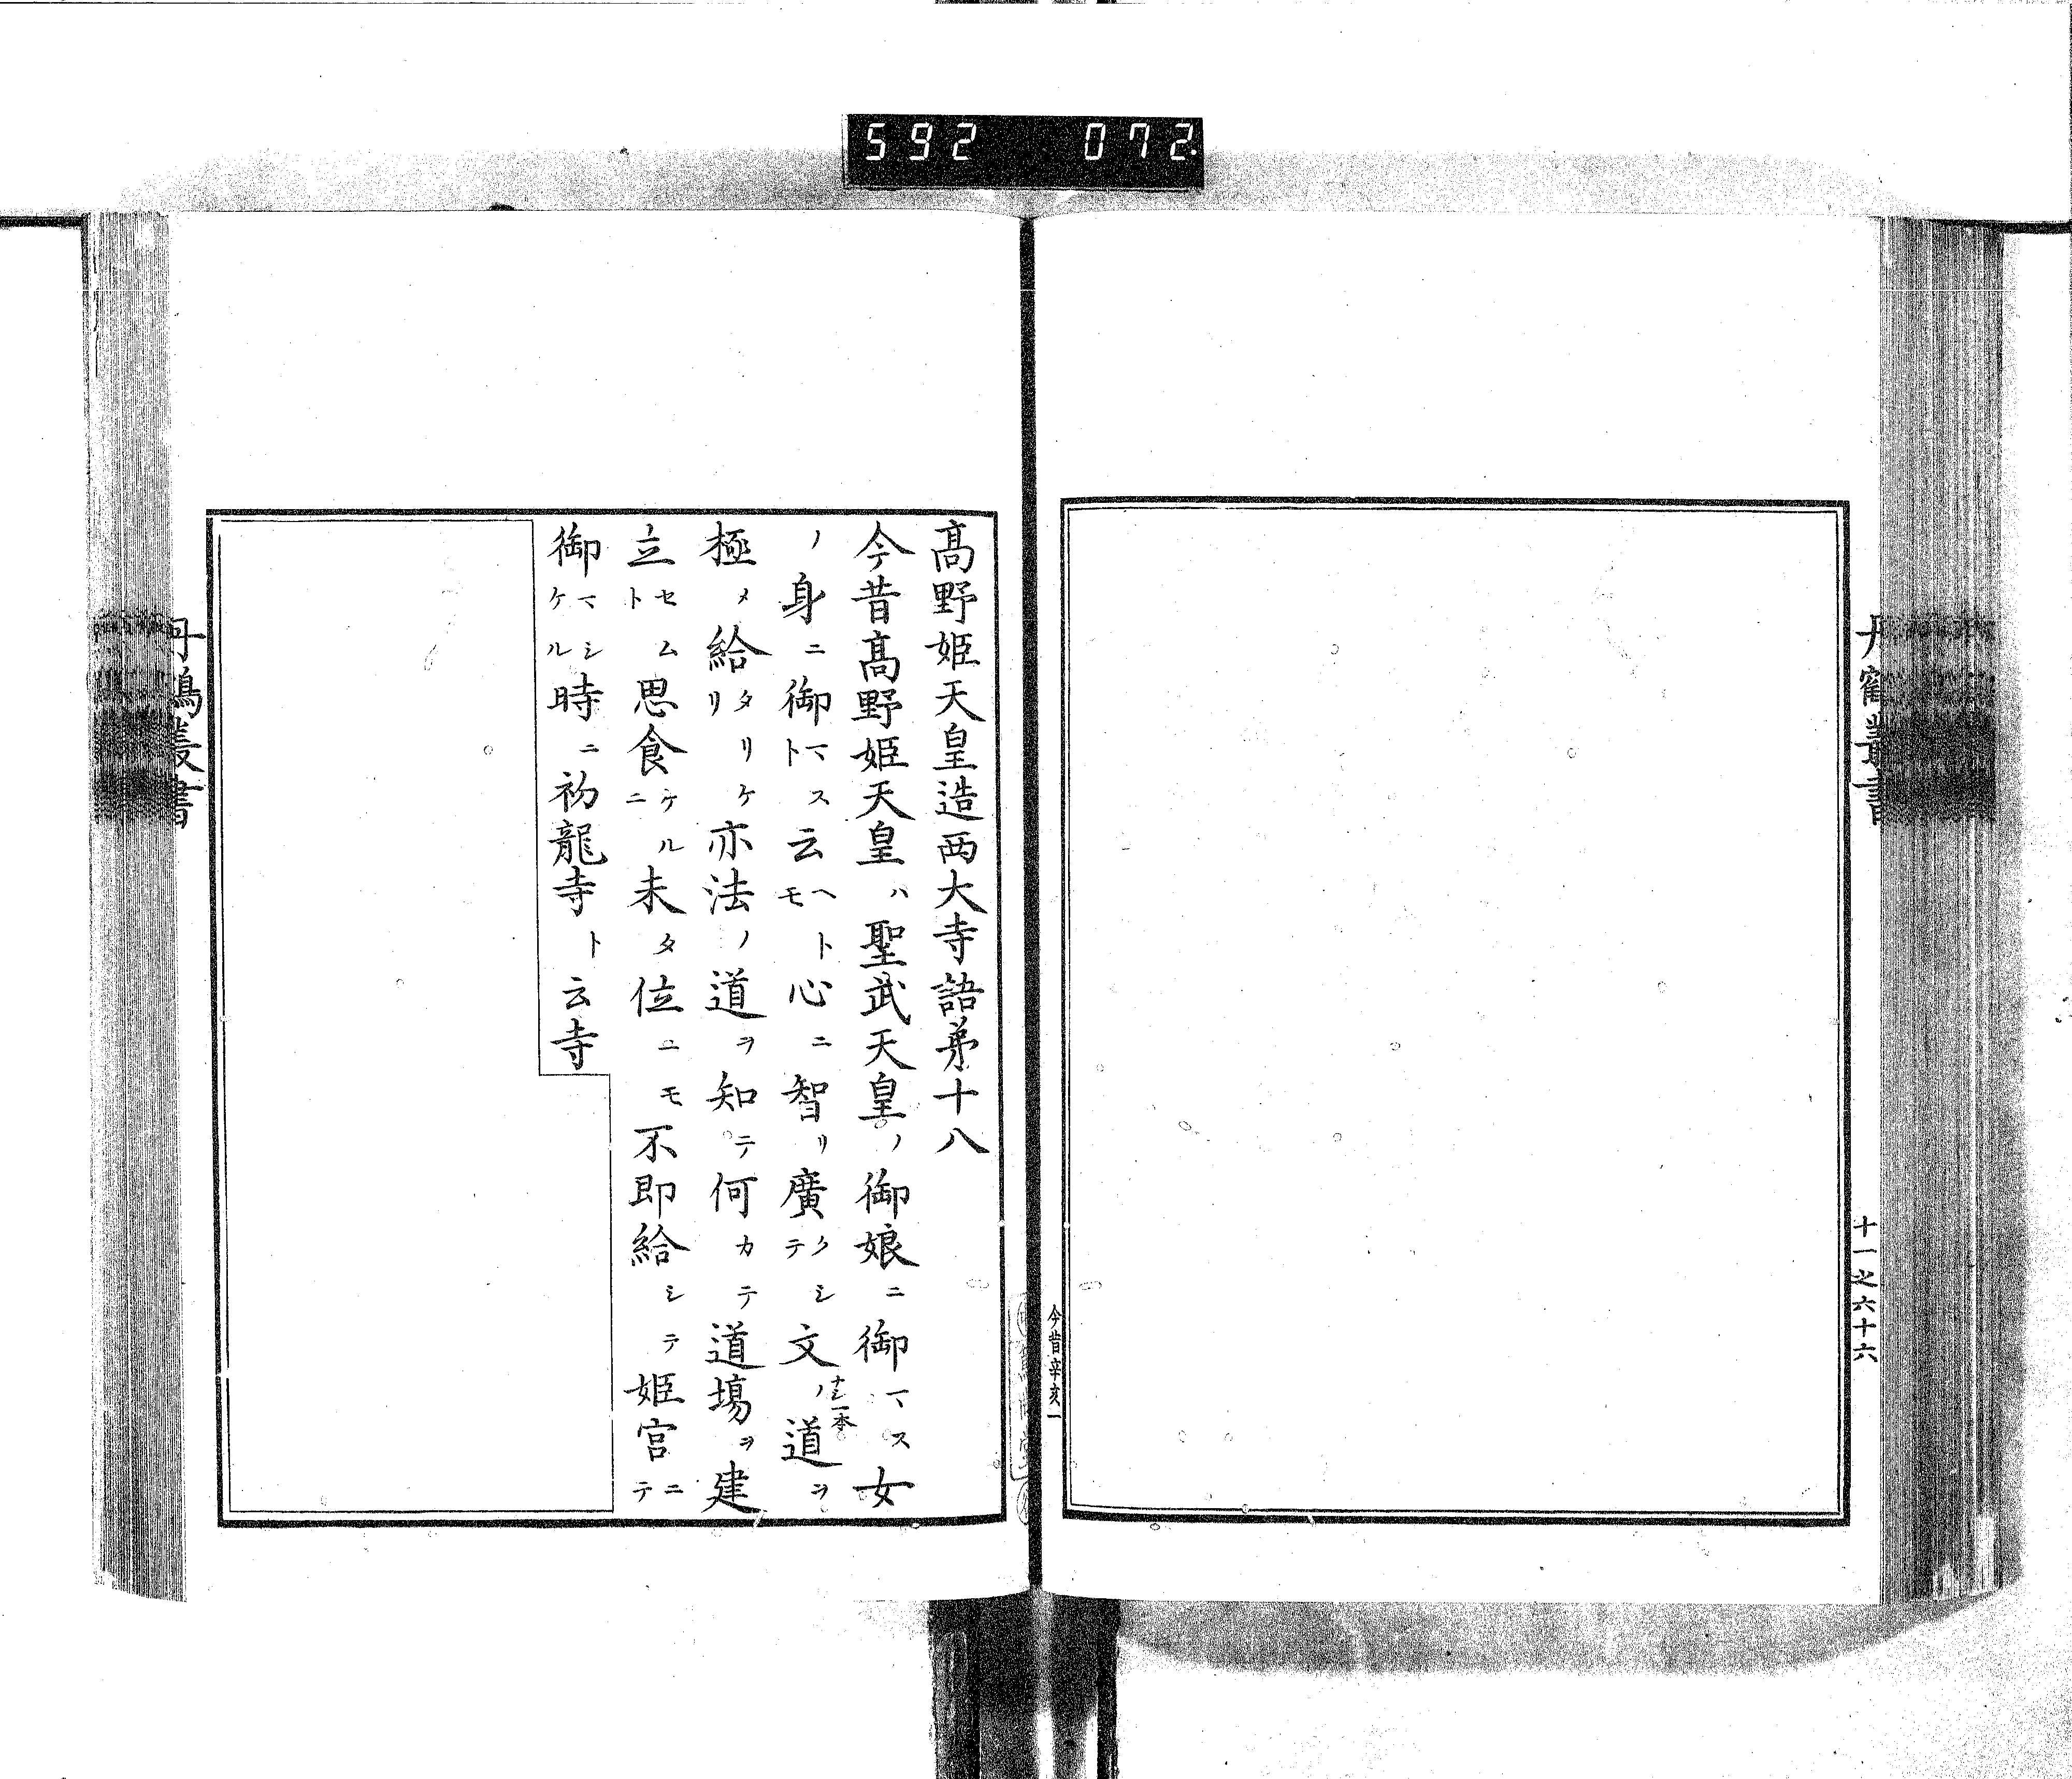 592 072
丹鶴叢書
十一之六十六
今昔辛亥一
髙野姫天皇造西大寺語苐十八
今昔髙野姫天皇ハ聖武天皇ノ御娘ニ御マス女
ノ身ニ御マスト云ヘトモ心ニ智リ廣クシテ文ノナシ一本道ヲ
極メ給タリケリ亦法ノ道ヲ知テ何カテ道場ヲ建
立セムト思食ケルニ未タ位ニモ不即給シテ姫宮ニテ
御マシケル時ニ初龍寺ト云寺
丹鶴叢書